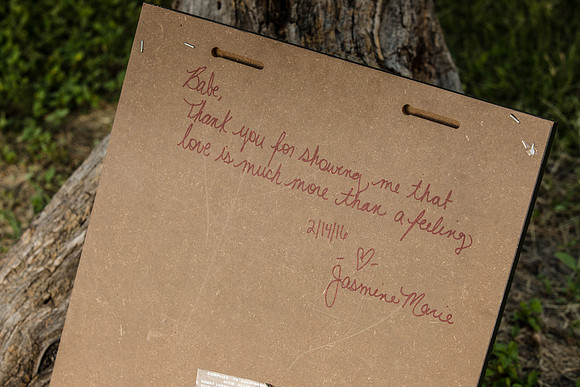 Babe,
Thank you for showing me that
love is much more than a feeling
2/14/16
- ♡ -
Jasmine Marie